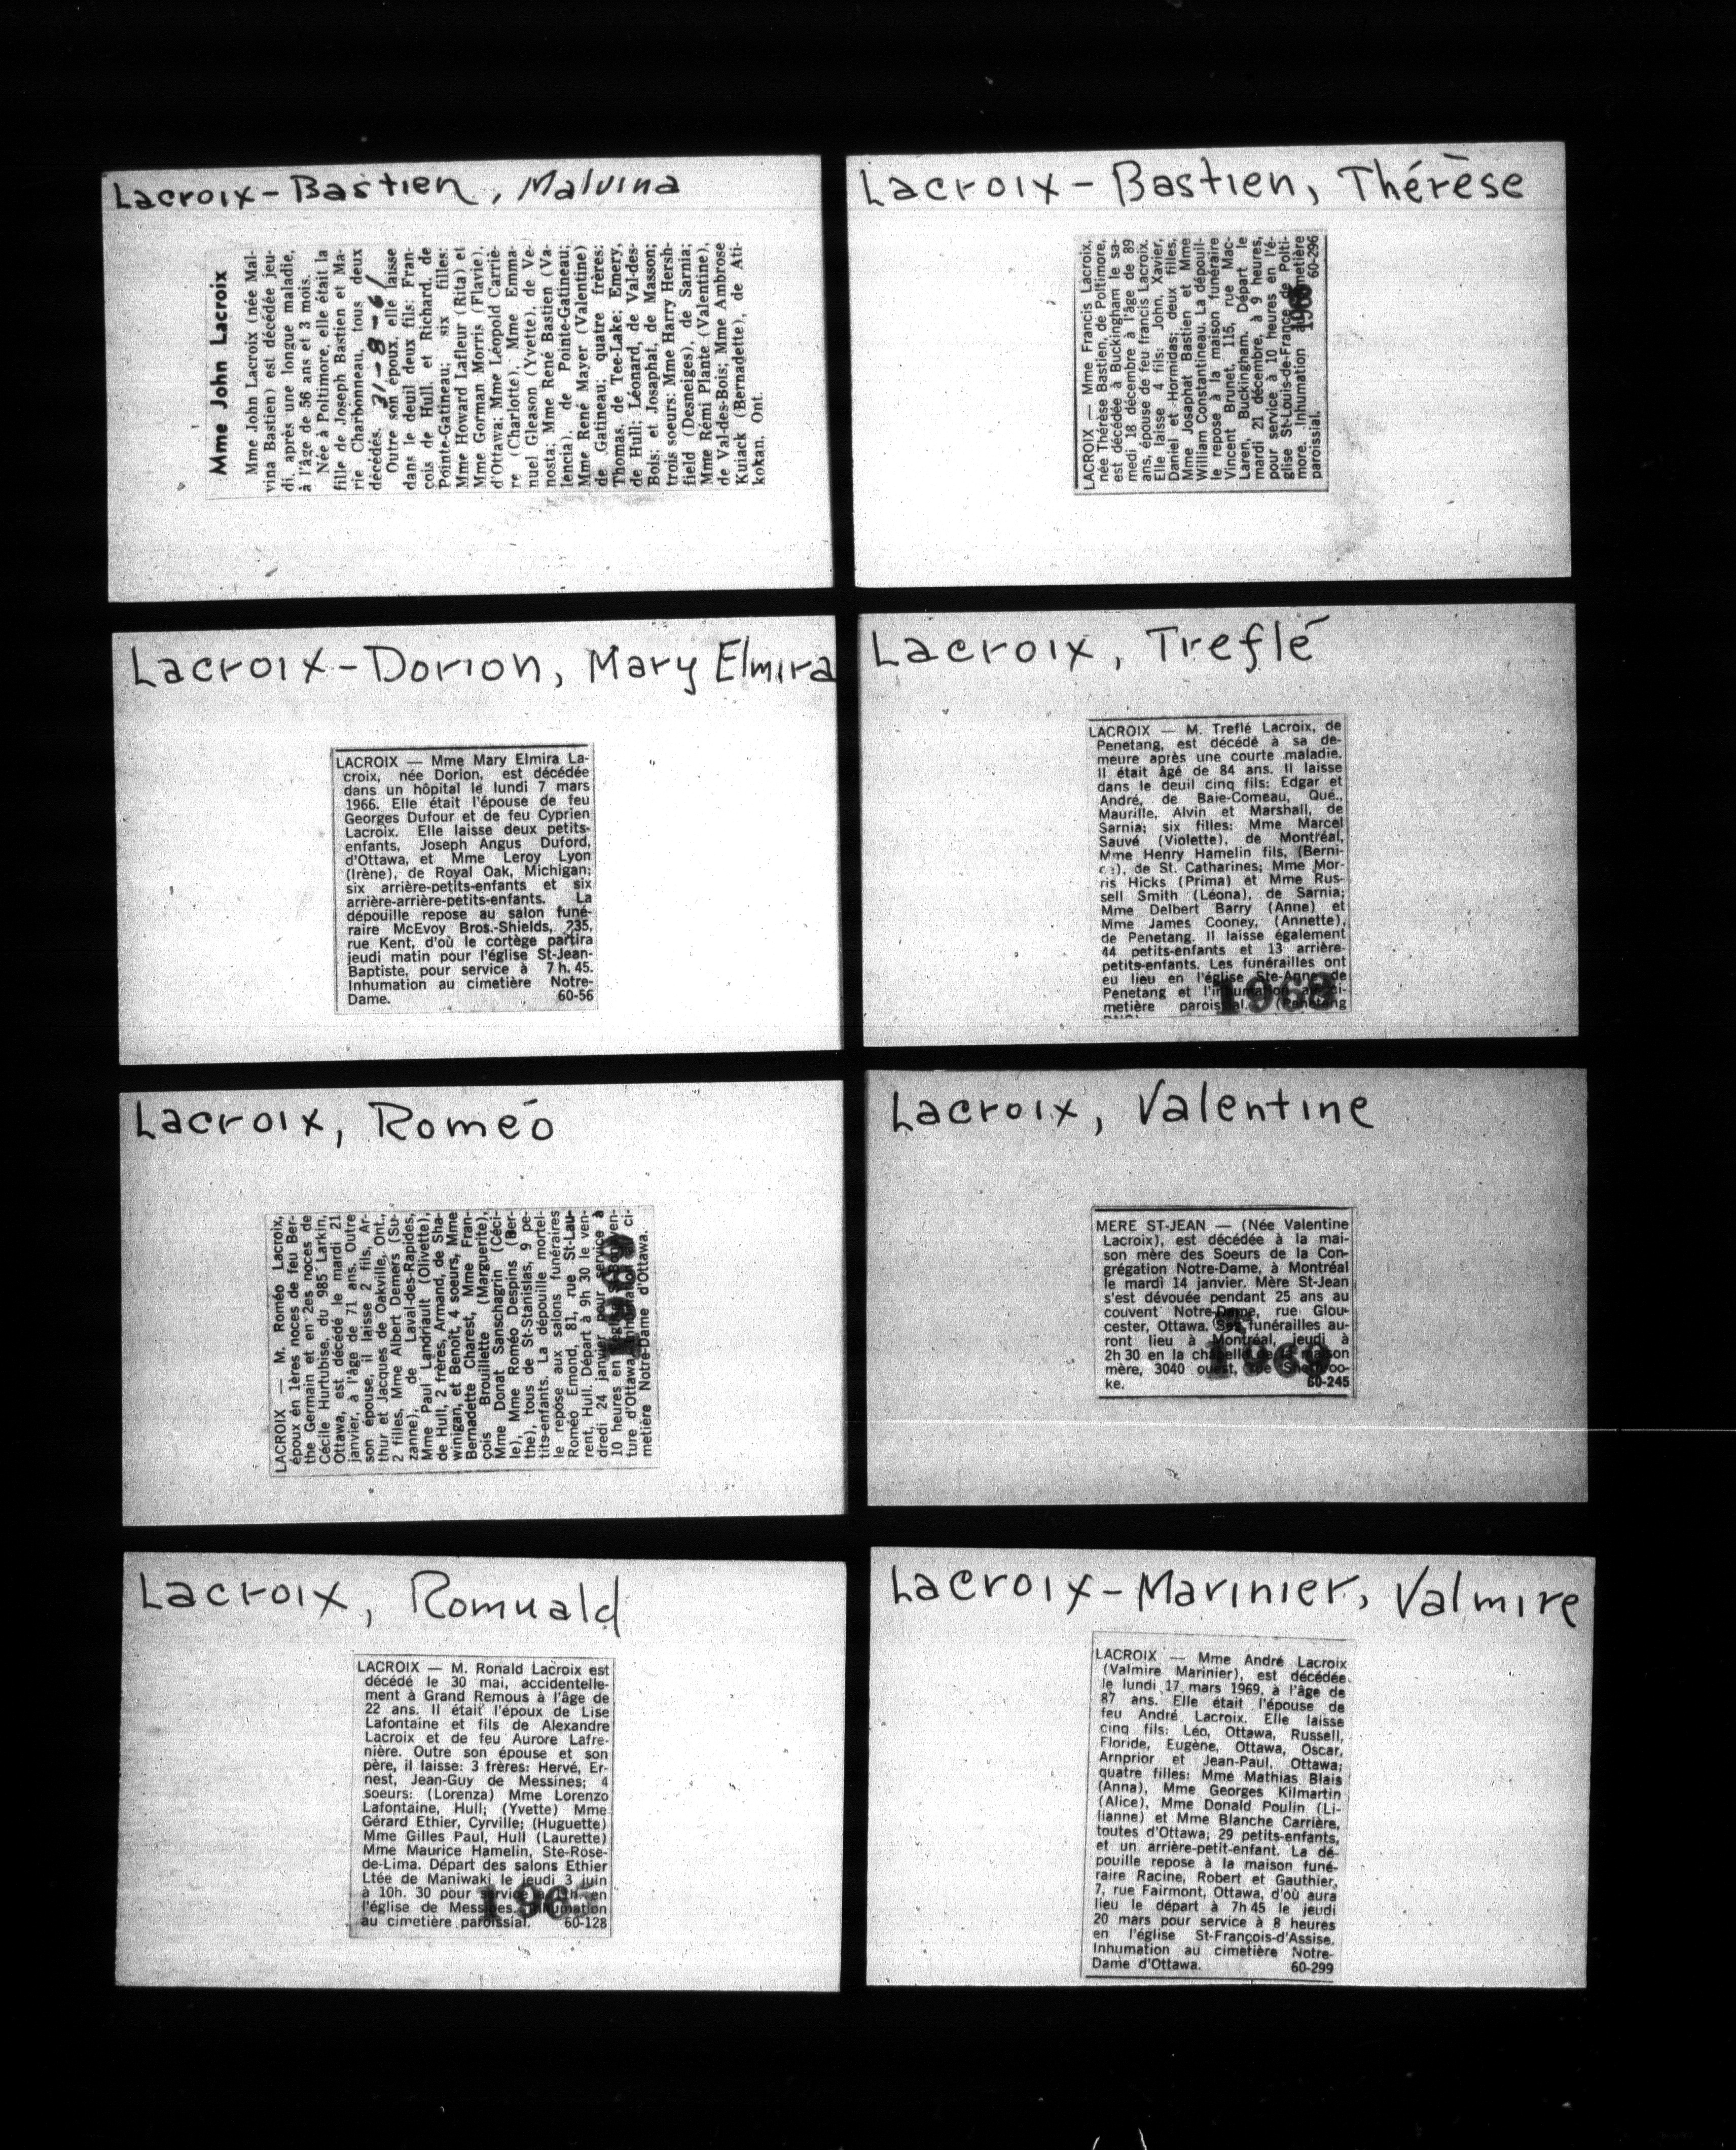 Lacroix-Bastien, Malvina
Mme John Lacroix
Mme John Lacroix (née Mal-
vina Bastien) est décédée jeu-
di, après une longue maladie,
à l'âge de 56 ans et 3 mois.
Née à Poltimore, elle était la
fille de Joseph Bastien et Ma-
rie Charbonneau, tous deux
décédés. 31-8-61
Outre son époux, elle laisse
dans le deuil deux fils: Fran-
çois de Hull, et Richard, de
Pointe-Gatineau; six filles:
Mme Howard Lafleur (Rita) et
Mme Gorman Morris (Flavie),
d'Ottawa; Mme Léopold Carriè-
re (Charlotte), Mme Emma-
nuel Gleason (Yvette), de Ve-
nosta; Mme René Bastien (Va-
lencia), de Pointe-Gatineau;
Mme René Mayer (Valentine)
de Gatineau; quatre frères:
Thomas, de Tee-Lake; Emery,
de Hull; Léonard, de Val-des-
Bois; et Josaphat, de Masson;
trois soeurs: Mme Harry Hersh-
field (Desneiges), de Sarnia;
Mme Rémi Plante (Valentine),
de Val-des-Bois; Mme Ambrose
Kuiack (Bernadette), de Ati-
kokan, Ont.
Lacroix-Bastien, Thérèse
LACROIX — Mme Francis Lacroix,
née Thérèse Bastien, de Poltimore,
est décédée à Buckingham le sa-
medi 18 décembre à l'âge de 89
ans, épouse de feu francis Lacroix.
Elle laisse 4 fils: John, Xavier,
Daniel et Hormidas; deux filles,
Mme Josaphat Bastien et Mme
William Constantineau. La dépouil-
le repose à la maison funéraire
Vincent Brunet, 115, rue Mac-
Laren, Buckingham. Départ le
mardi 21 décembre, à 9 heures,
pour service à 10 heures en l'é-
glise St-Louis-de-France de Polti-
more. Inhumation au cimetière
paroissial. 60-296
Lacroix-Dorion, Mary Elmira
LACROIX — Mme Mary Elmira La-
croix, née Dorion, est décédée
dans un hôpital le lundi 7 mars
1966. Elle était l'épouse de feu
Georges Dufour et de feu Cyprien
Lacroix. Elle laisse deux petits-
enfants, Joseph Angus Duford,
d'Ottawa, et Mme Leroy Lyon
(Irène), de Royal Oak, Michigan;
six arrière-petits-enfants et six
arrière-arrière-petits-enfants. La
dépouille repose au salon funé-
raire McEvoy Bros.-Shields, 235,
rue Kent, d'où le cortège partira
jeudi matin pour l'église St-Jean-
Baptiste, pour service à 7 h. 45.
Inhumation au cimetière Notre-
Dame. 60-56
Lacroix, Treflé
LACROIX — M. Treflé Lacroix, de
Penetang, est décédé à sa de-
meure après une courte maladie.
Il était âgé de 84 ans. Il laisse
dans le deuil cinq fils: Edgar et
André, de Baie-Comeau, Qué.,
Maurille, Alvin et Marshall, de
Sarnia; six filles: Mme Marcel
Sauvé (Violette), de Montréal,
Mme Henry Hamelin fils, (Berni-
ce), de St. Catharines; Mme Mor-
ris Hicks (Prima) et Mme Rus-
sell Smith (Léona), de Sarnia;
Mme Delbert Barry (Anne) et
Mme James Cooney, (Annette),
de Penetang. Il laisse également
44 petits-enfants et 13 arrière-
petits-enfants. Les funérailles ont
eu lieu en l'église Ste-Anne de
Penetang et l'inhumation au ci-
metière paroissial. (Penetang
Lacroix, Roméo
LACROIX — M. Roméo Lacroix,
époux en 1ères noces de feu Ber-
the Germain et en 2es noces de
Cécile Hurtubise, du 985 Larkin,
Ottawa, est décédé le mardi 21
janvier, à l'âge de 71 ans. Outre
son épouse, il laisse 2 fils, Ar-
thur et Jacques de Oakville, Ont.,
2 filles, Mme Albert Demers (Su-
zanne), de Laval-des-Rapides,
Mme Paul Landriault (Olivette),
de Hull, 2 frères, Armand, de Sha-
winigan, et Benoît, 4 soeurs, Mme
Bernadette Charest, Mme Fran-
çois Brouillette (Marguerite),
Mme Donat Sanschagrin (Céci-
le), Mme Roméo Despins (Ber-
the), tous de St-Stanislas, 9 pe-
tits-enfants. La dépouille mortel-
le repose aux salons funéraires
Roméo Emond, 81, rue St-Lau-
rent, Hull. Départ à 9h 30 le ven-
dredi 24 janvier pour service à
10 heures en
ture d'Ottawa. Inhumation au ci-
metière Notre-Dame d'Ottawa.
Lacroix, Valentine
MERE ST-JEAN — (Née Valentine
Lacroix), est décédée à la mai-
son mère des Soeurs de la Con-
grégation Notre-Dame, à Montréal
le mardi 14 janvier. Mère St-Jean
s'est dévouée pendant 25 ans au
couvent Notre-Dame, rue Glou-
cester, Ottawa. Ses funérailles au-
ront lieu à Montréal, jeudi à
2h 30 en la chapelle de la maison
mère, 3040 ouest, rue Sherbroo-
ke. 60-245
Lacroix, Romuald
LACROIX — M. Ronald Lacroix est
décédé le 30 mai, accidentelle-
ment à Grand Remous à l'âge de
22 ans. Il était l'époux de Lise
Lafontaine et fils de Alexandre
Lacroix et de feu Aurore Lafre-
nière. Outre son épouse et son
père, il laisse: 3 frères: Hervé, Er-
nest, Jean-Guy de Messines; 4
soeurs: (Lorenza) Mme Lorenzo
Lafontaine, Hull; (Yvette) Mme
Gérard Ethier, Cyrville; (Huguette)
Mme Gilles Paul, Hull (Laurette)
Mme Maurice Hamelin, Ste-Rose-
de-Lima. Départ des salons Ethier
Ltée de Maniwaki le jeudi 3 juin
à 10h. 30 pour service à en
l'église de Messines. Inhumation
au cimetière paroissial. 60-128
Lacroix-Marinier, Valmire
LACROIX — Mme André Lacroix
(Valmire Marinier), est décédée
le lundi 17 mars 1969, à l'âge de
87 ans. Elle était l'épouse de
feu André Lacroix. Elle laisse
cinq fils: Léo, Ottawa, Russell,
Floride, Eugène, Ottawa, Oscar,
Arnprior et Jean-Paul, Ottawa;
quatre filles: Mme Mathias Blais
(Anna), Mme Georges Kilmartin
(Alice), Mme Donald Poulin (Li-
lianne) et Mme Blanche Carrière,
toutes d'Ottawa; 29 petits-enfants,
et un arrière-petit-enfant. La dé-
pouille repose à la maison funé-
raire Racine, Robert et Gauthier,
7, rue Fairmont, Ottawa, d'où aura
lieu le départ à 7h 45 le jeudi
20 mars pour service à 8 heures
en l'église St-François-d'Assise.
Inhumation au cimetière Notre-
Dame d'Ottawa. 60-299